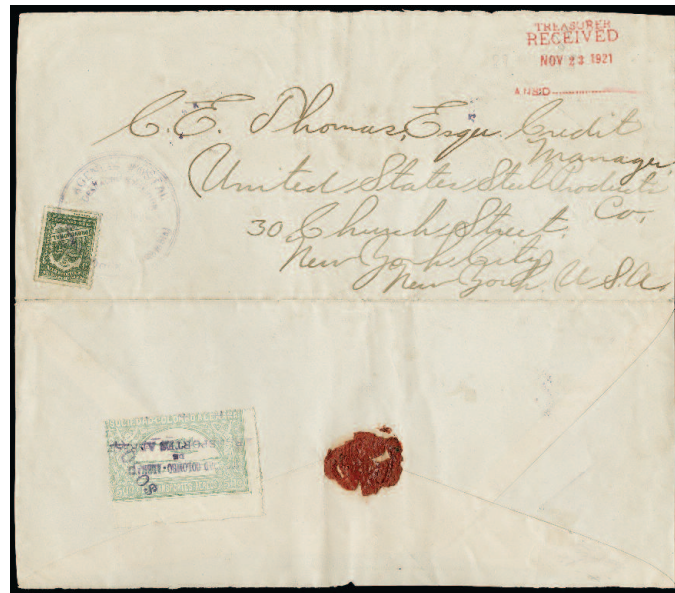 TREASURER
RECEIVED
NOV 23 1921
C. E. Thomas, Esqu. Credit
Manager,
United States Steel Products
Co,
30 Church Street,
New York City
New York U S.A.
AGENCIA POSTAL
COLOMBO - ALEMA
DE
SPORTES AER